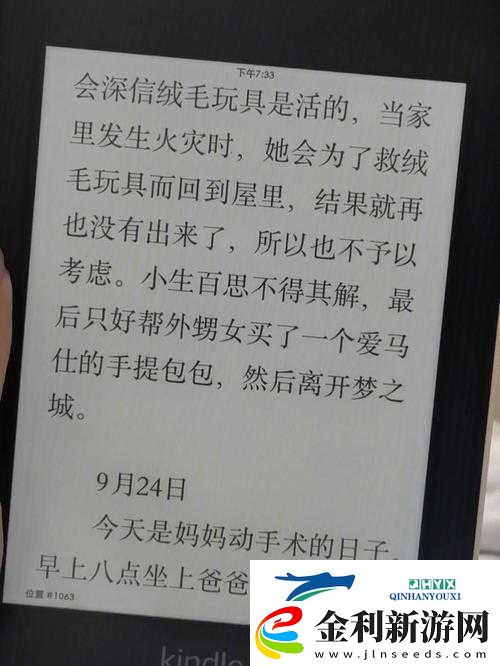 下午7:33
会深信绒毛玩具是活的，当家
里发生火灾时，她会为了救绒
毛玩具而回到屋里，结果就再
也没有出来了，所以也不予以
考虑。小生百思不得其解，最
后只好帮外甥女买了一个爱马
仕的手提包包，然后离开梦之
城。
9月24日
今天是妈妈动手术的日子，
早上八点坐上爸爸
位置 #1063
kindle
JHYX
QINHANYOUXI
金利新游网
www.jlnseeds.com